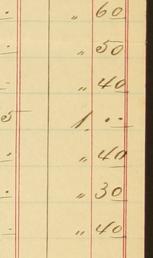 " 60
" 50
" 40
5 1. ..
" 40
" 30
" 40